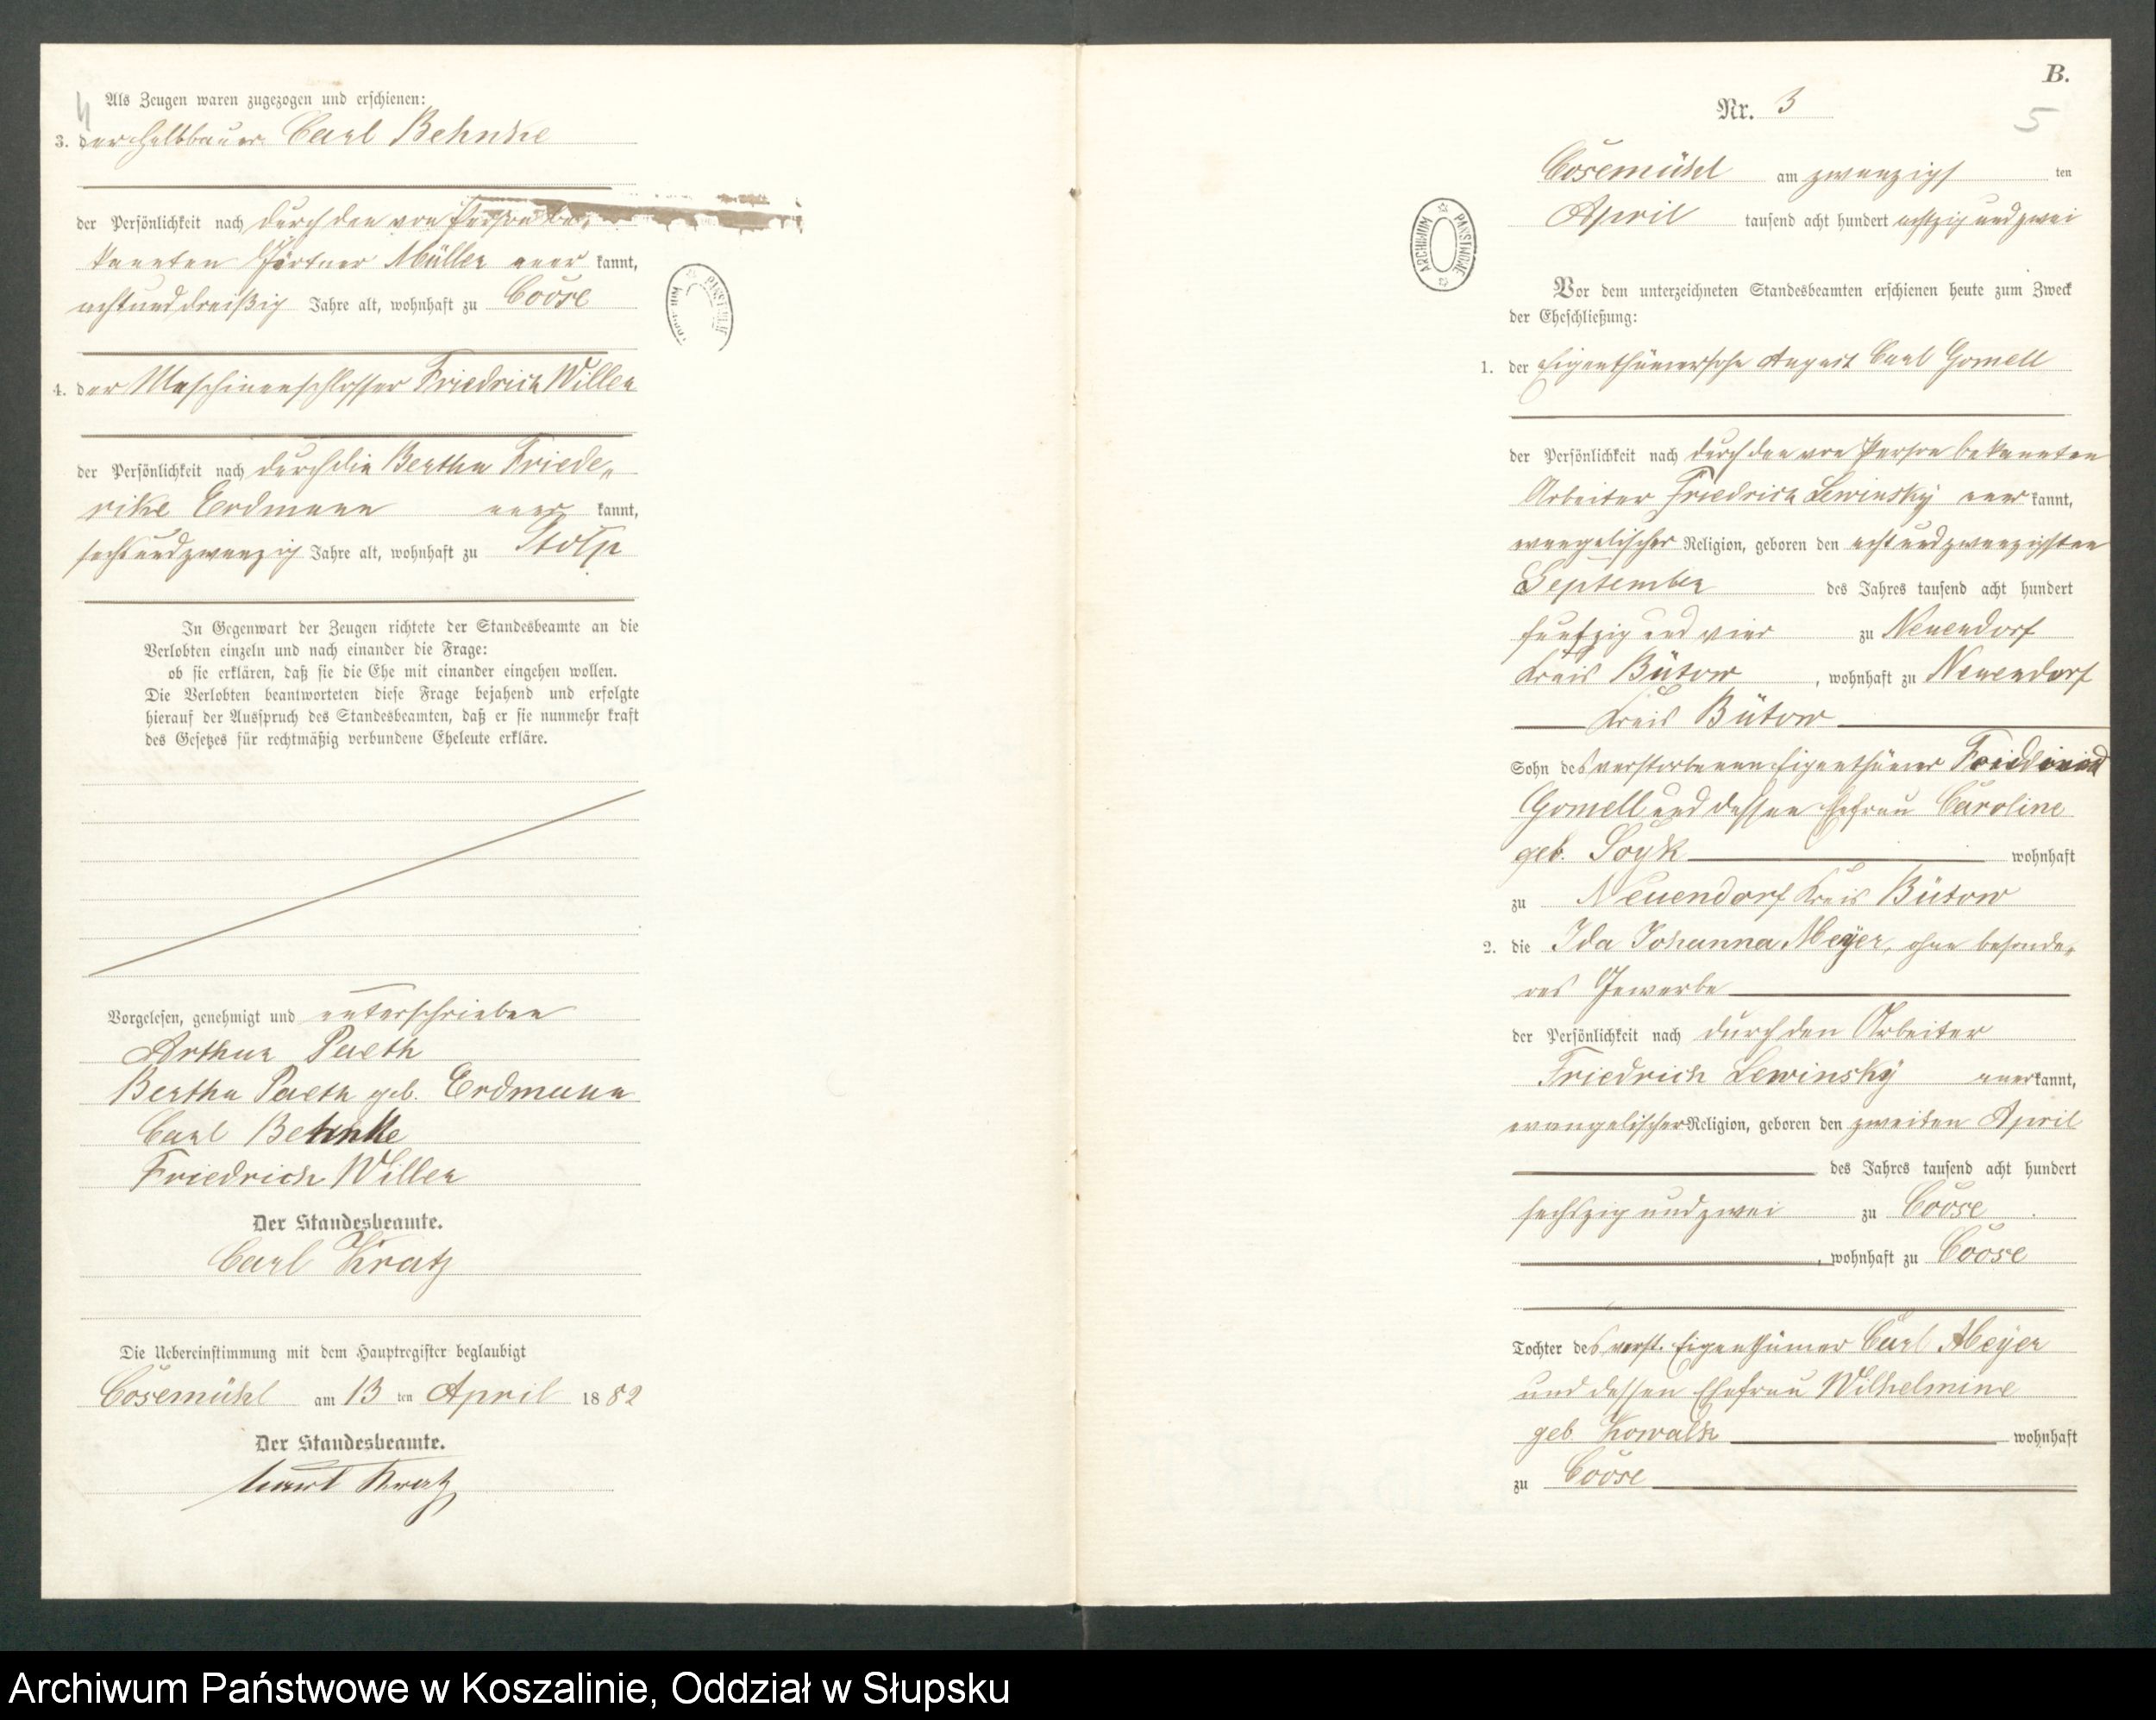 4
Als Zeugen waren zugezogen und erschienen:
3. der Halbbauer Carl Behnke
der Persönlichkeit nach durch den von Person be-
kannten Gärtner Müller aner kannt,
achtunddreißig Jahre alt, wohnhaft zu Coose
4. der Maschinenschlosser Friedrich Willer
der Persönlichkeit nach durch die Bertha Friede-
rike Erdmann aner kannt,
sechsundzwanzig Jahre alt, wohnhaft zu Stolp
In Gegenwart der Zeugen richtete der Standesbeamte an die
Verlobten einzeln und nach einander die Frage:
ob sie erklären, daß sie die Ehe mit einander eingehen wollen.
Die Verlobten beantworteten diese Frage bejahend und erfolgte
hierauf der Ausspruch des Standesbeamten, daß er sie nunmehr kraft
des Gesetzes für rechtmäßig verbundene Eheleute erkläre.
Vorgelesen, genehmigt und unterschrieben
Arthur Paeth
Bertha Paeth geb. Erdmann
Carl Behnke
Friedrich Willer
Der Standesbeamte.
Carl Kratz
Die Uebereinstimmung mit dem Hauptregister beglaubigt
Cosemühl am 13 ten April 1882
Der Standesbeamte.
Kratz
ARCHIWUM PAŃSTWOWE
B.
Nr. 3
5
Cosemühl am zwanzigs ten
April tausend acht hundert achtzig und zwei
ARCHIWUM PAŃSTWOWE
Vor dem unterzeichneten Standesbeamten erschienen heute zum Zweck
der Eheschließung:
1. der Eigenthümersohn August Carl Gomell
der Persönlichkeit nach durch den von Person bekannten
Arbeiter Friedrich Lewinsky aner kannt,
evangelischer Religion, geboren den achtundzwanzigsten
September des Jahres tausend acht hundert
funfzig und vier zu Neuendorf
Kreis Bütow, wohnhaft zu Neuendorf
Kreis Bütow
Sohn des verstorbenen Eigenthümer
Gomell und dessen Ehefrau Caroline
geb. Soyk wohnhaft
zu Neuendorf Kreis Bütow
2. die Ida Johanna Meyer, ohne besonde-
res Gewerbe
der Persönlichkeit nach durch den Arbeiter
Friedrich Lewinsky aner kannt,
evangelischer Religion, geboren den zweiten April
des Jahres tausend acht hundert
sechszig und zwei zu Coose
, wohnhaft zu Coose
Tochter des verst. Eigenthümer Carl Meyer
und dessen Ehefrau Wilhelmine
geb. Kowalk wohnhaft
zu Coose
Archiwum Państwowe w Koszalinie, Oddział w Słupsku